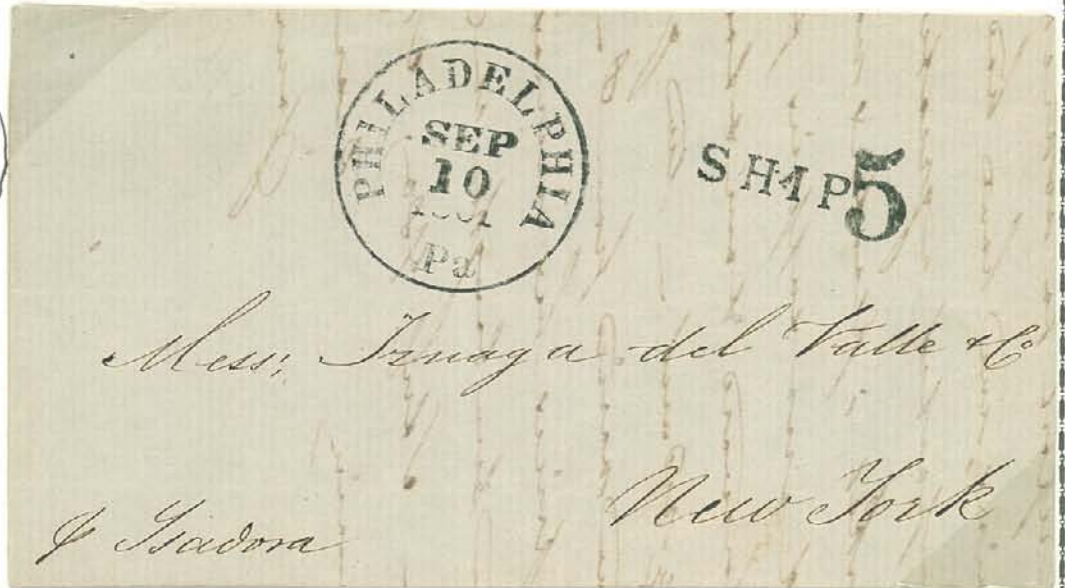 PHILADELPHIA
SEP
10
Pa
SHIP 5
Mess: Iznaga del Valle & Co
New York
p Isadora